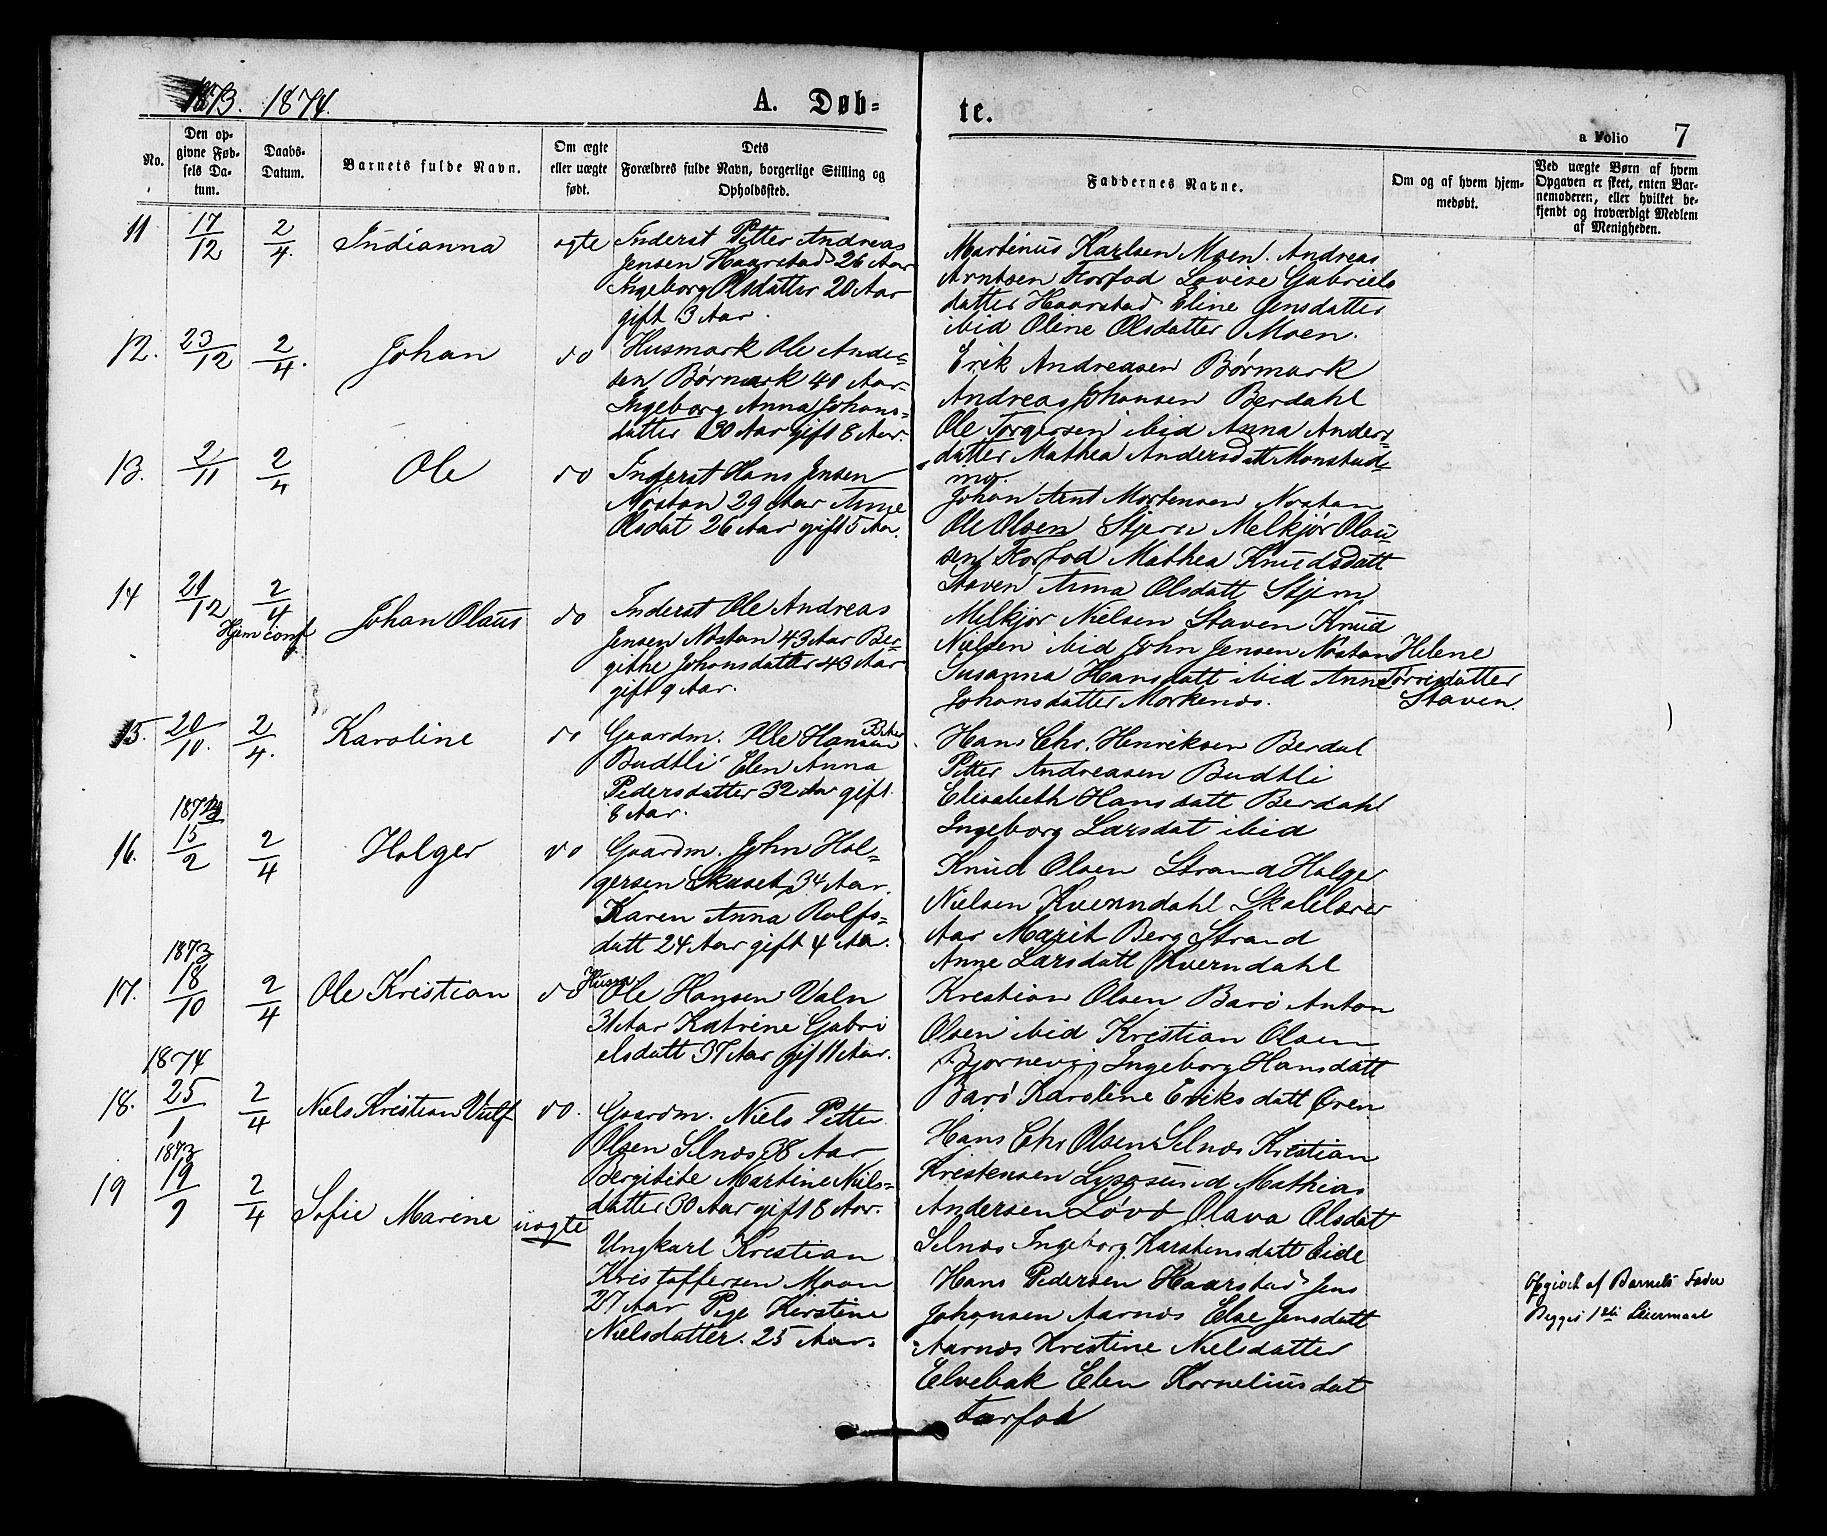 1873. 1874.
A. Døb-
te.
a Folio 7
No.
Den op-
givne Fød-
sels Da-
tum.
Daabs-
Datum.
Barnets fulde Navn.
Om ægte
eller uægte
født.
Dets
Forældres fulde Navn, borgerlige Stilling og
Opholdssted.
Faddernes Navne.
Om og af hvem hjem-
medøbt.
Ved uægte Børn af hvem
Opgaven er skeet, enten Bar-
nemoderen, eller hvilket be-
kjendt og troværdigt Medlem
af Menigheden.
11 17/12 2/4. Indianna ægte
Inderst Petter Andreas
Jensen Haarstad 26 Aar
Ingeborg Olsdatter 20 Aar
gift 3 Aar.
Martinus Karlsen Moen. Andreas
Arntsen Forfod Lovise Gabriels
datter Haarstad Eline Jensdatter
ibid Oline Olsdatter Moen.
12. 23/12 2/4. Johan do
Husmark Ole Ander-
sen Børmark 40 Aar
Ingeborg Anna Johans-
datter 30 Aar gift 8 Aar.
Erik Andreasen Børmark
Andreas Johansen Berdahl
Ole Torgersen ibid Anna Anders
datter Mathea Andersdatt Monstad-
mo.
13. 2/11 2/4 Ole do
Inderst Hans Jensen
Nøstan 29 Aar Anne
Olsdat 26 Aar gift 5 Aar.
Johan Arnt Mortensen Nøstan
Ole Olsen Stjern Melkjør Olau
sen Forfod Mathea Knudsdatt
Staven Anna Olsdatt Stjern
14 21/12 2/4 Hjem conf. Johan Olaus do
Inderst Ole Andreas
Jensen Nøstan 43 Aar Ber-
githe Johansdatter 43 Aar
gift 9 Aar.
Melkjør Nielsen Staven Knud
Nielsen ibid John Jensen Nøstan
Susanna Hansdatt ibid Anne
Johansdatter Morkenæs.
Helene
Torresdatter
Staven.
15. 20/10. 2/4. Karoline do
Gaardm. Olle Hansen
Budtli Elen Anna
Pedersdatter 32 Aar gift
8 Aar.
Hans Chr. Henriksen Berdal
Petter Andreasen Budtli
Elisabeth Hansdatt Berdahl
Ingeborg Larsdat ibid
16. 15/2 2/4 Holger do
Gaardm. John Hol-
gersen Skaset 34 Aar.
Karen Anna Rolfs-
datt 24 Aar gift 4 Aar.
Knud Olsen Strand Holger
Nielsen Kverndahl Skolelærer
Aar Marit Berg Strand
Anne Larsdatt Kverndahl
1873
17. 18/10 2/4 Ole Kristian do
Husm Ole Hansen Valn
31 Aar Katrine Gabri
elsdatt 37 Aar gif 11 Aar.
Krestian Olsen Barø Anton
Olsen ibid Krestian Olsen
Bjornevig Ingeborg Hansdatt
Barø Karoline Eriksdatt Øren
1874
18. 25/1 2/4 Niels Kristian Vulf do.
Gaardm. Niels Petter
Olsen Selnæs 38 Aar
Bergitite Martine Niels-
datter 30 Aar gift 8 Aar.
Hans Chr Olsen Selnæs Kristian
Krestensen Lysøsund Mathias
Andersen Løvø Olava Olsdatt
Selnæs Ingeborg Karstensdatt Eide
1873
19 19/9 2/4 Sofie Marine uægte
Ungkarl Krestian
Kristoffersen Moan
27 Aar Pige Kerstine
Nielsdatter. 25 Aar.
Hans Pedersen Haarstad Jens
Johansen Aarnæs Else Jensdatt
Aarnæs Kristine Nielsdatter
Elvebak Elen Korneliusdat
Tarfod
Opgivet af Barnets Fader
Begges 1ste Leiermaal